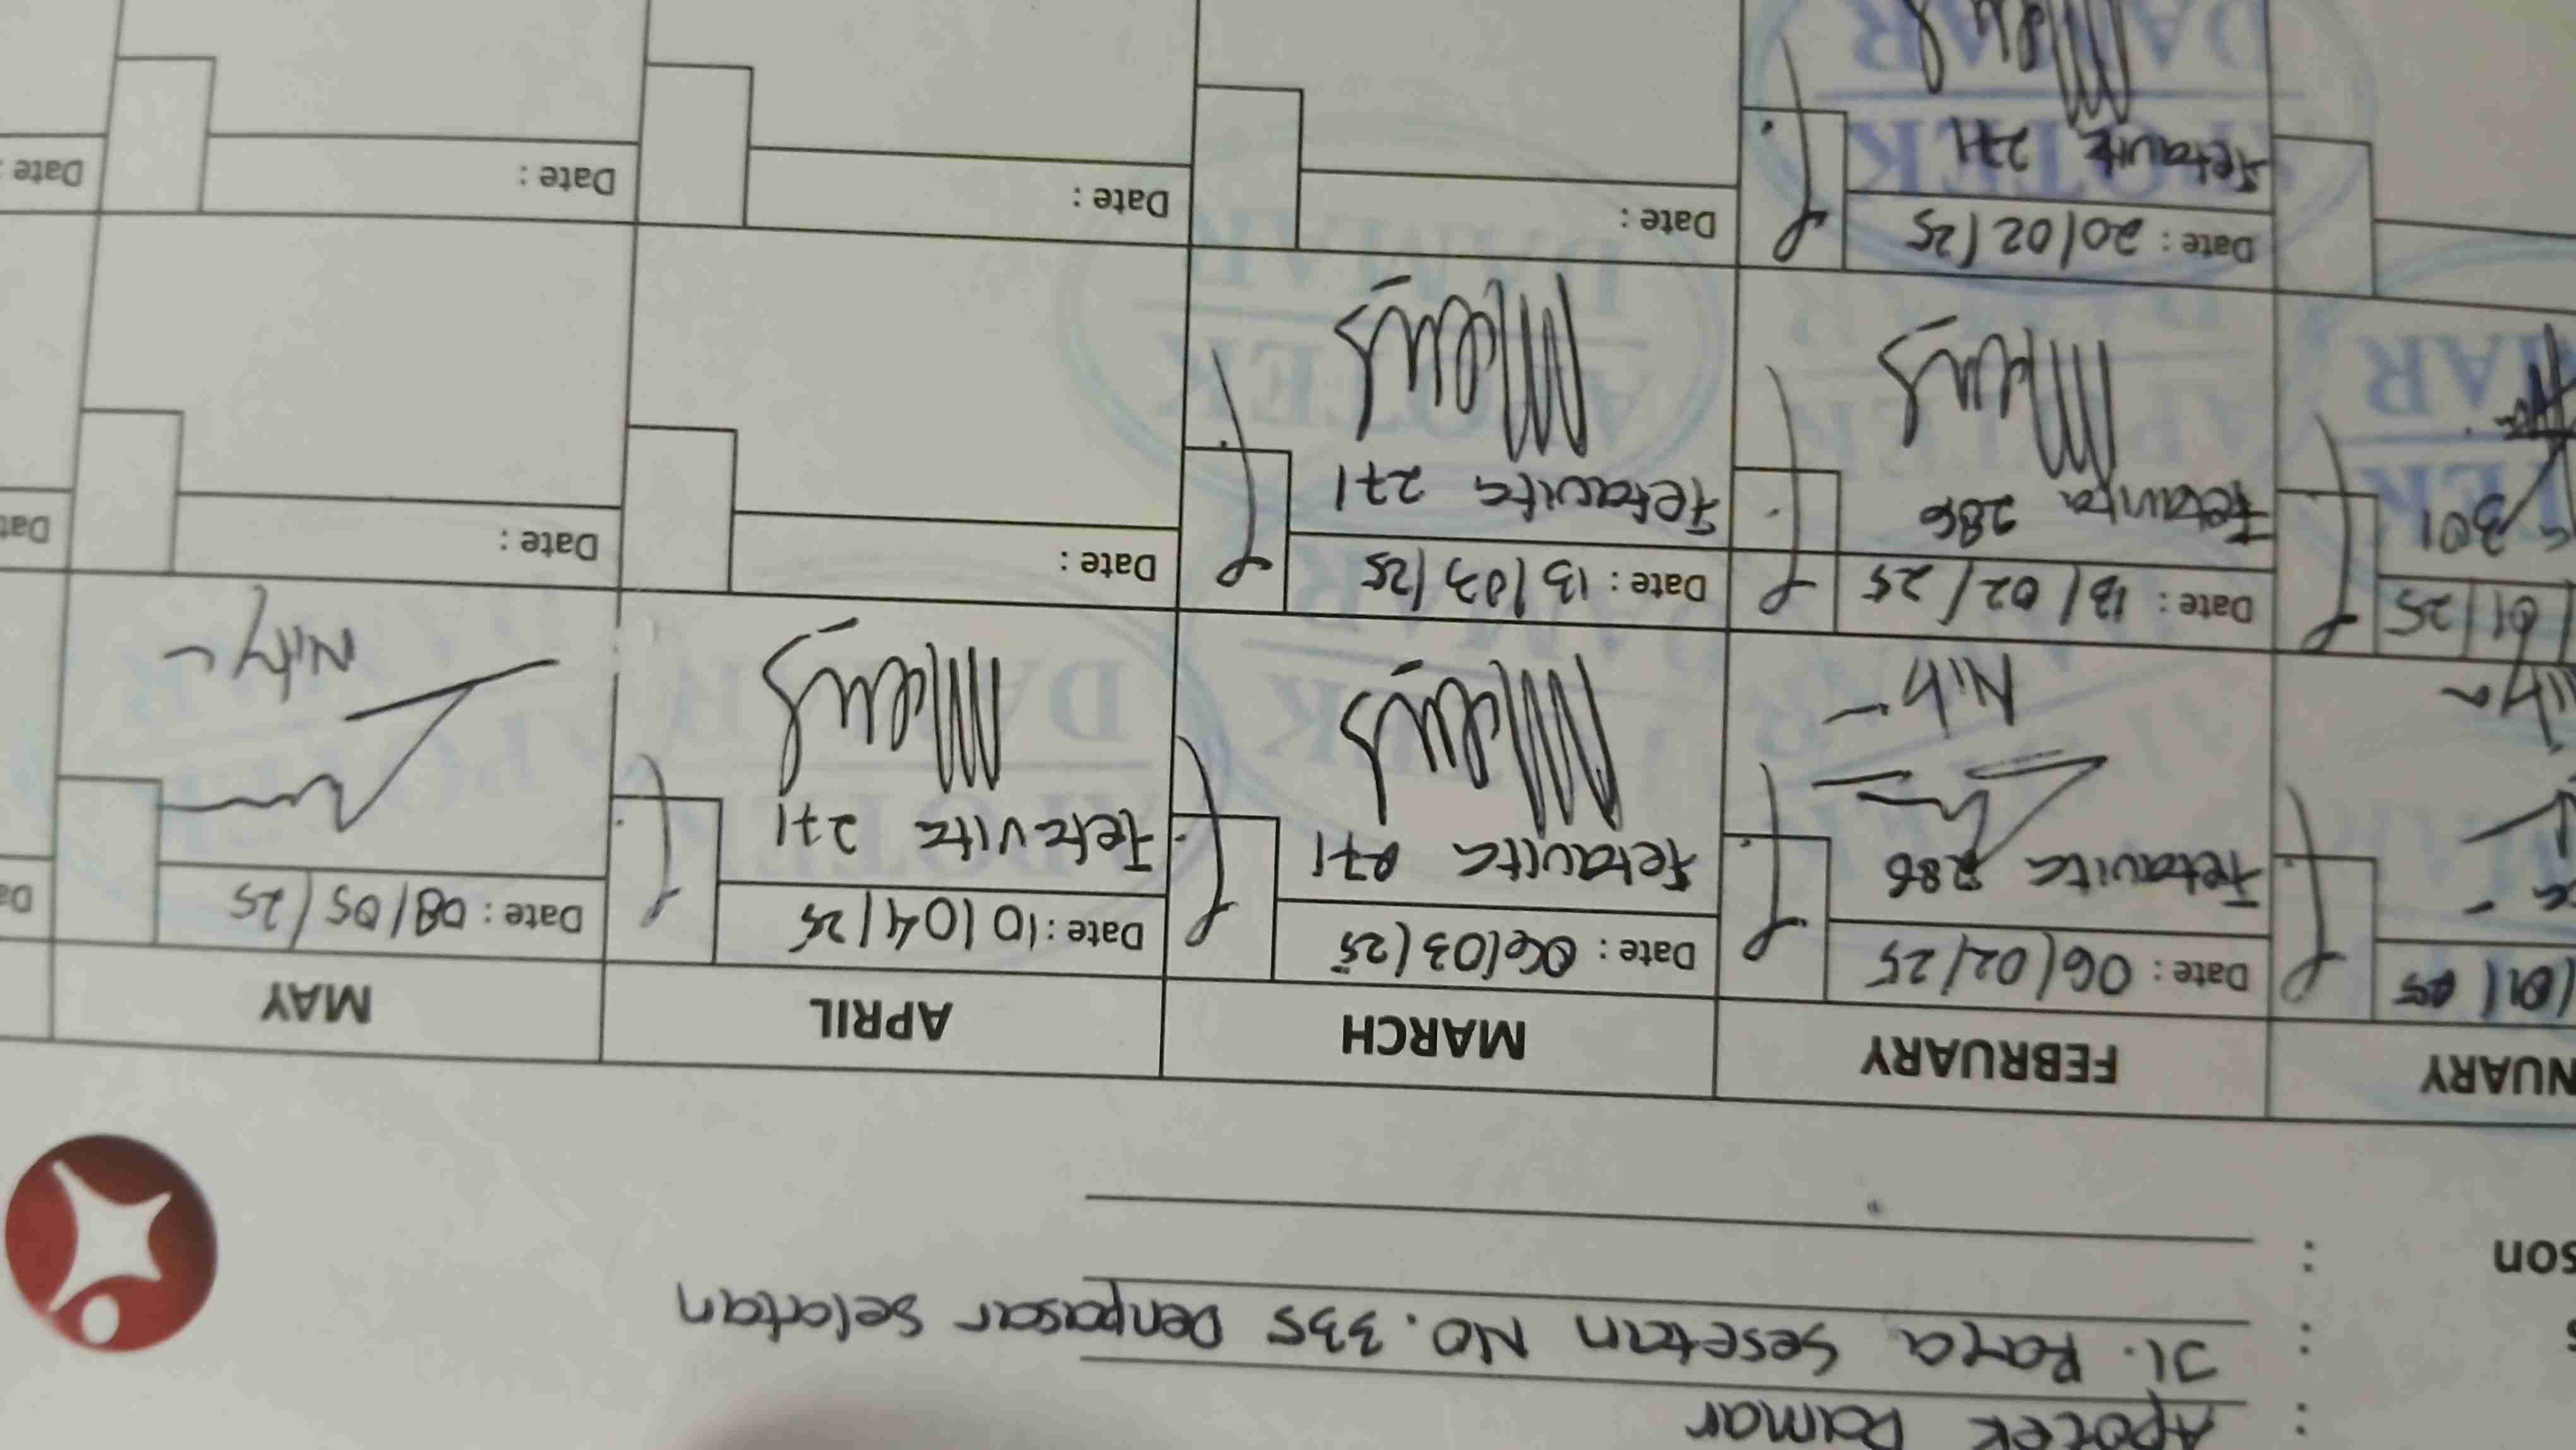 Apotek Damar
: Jl. Raya Sesetan No. 335 Denpasar Selatan
son :
NUARY FEBRUARY MARCH APRIL MAY
/01/25 Date : 06/02/25 Date : 06/03/25 Date : 10/04/25 Date : 08/05/25 Da
Fetavita 286 Fetavita 271 Fetavita 271
/01/25 Date : 13/02/25 Date : 13/03/25 Date : Date : Dat
301 Fetavita 286 Fetavita 271
Date : 20/02/25 Date : Date : Date : Date :
Fetavita 271
APOTEK
DAMAR